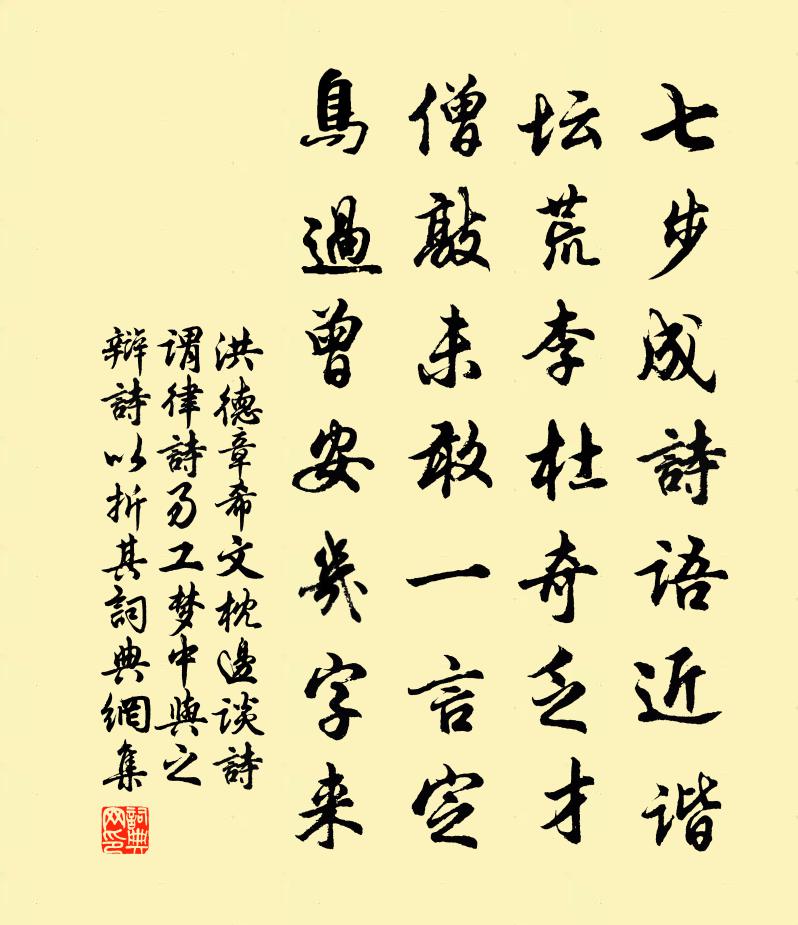 七步成詩語近谐
坛荒李杜奇乏才
僧敲未敢一言定
鳥過曾安幾字来
洪德章希文枕邊談詩
謂律詩易工梦中與之
辯詩以折其詞典網集
詞典网印